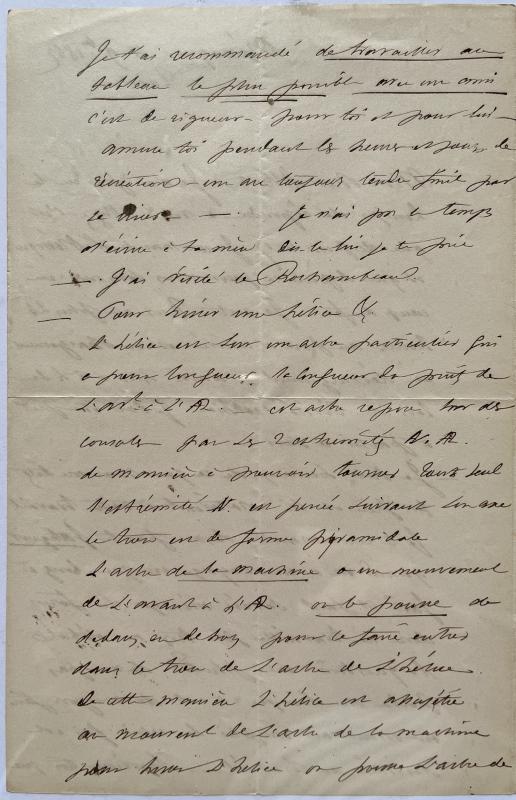 Je t'ai recommandé de travailler au
tableau le plus possible avec un ami
c'est de rigueur – pour toi et pour lui –
amuse toi pendant les heures et jours de
récréation – un arc toujours tendu finit par
se – Je n'ai pas le temps
d'écrire à ta mère dis le lui je te prie
— . J'ai visité le Rochambeau.
— Pour hisser une hélice
L'hélice est sur un arbre particulier qui
a pour longueur la longueur du puits de
l'avt à l'AR. cet arbre repose sur des
consoles par les 2 extrémités AV. AR.
de manière à pouvoir tourner tout seul
l'extrémité AV. est percée suivant son axe
le trou est de forme piramidale
L'arbre de la machine a un mouvement
de l'avant à l'AR. on le pousse de
dedans en dehors pour le faire entrer
dans le trou de l'arbre de l'hélice
de cette manière l'hélice est
au mouvement de l'arbre de la machine
pour hisser l'hélice on l'arbre de